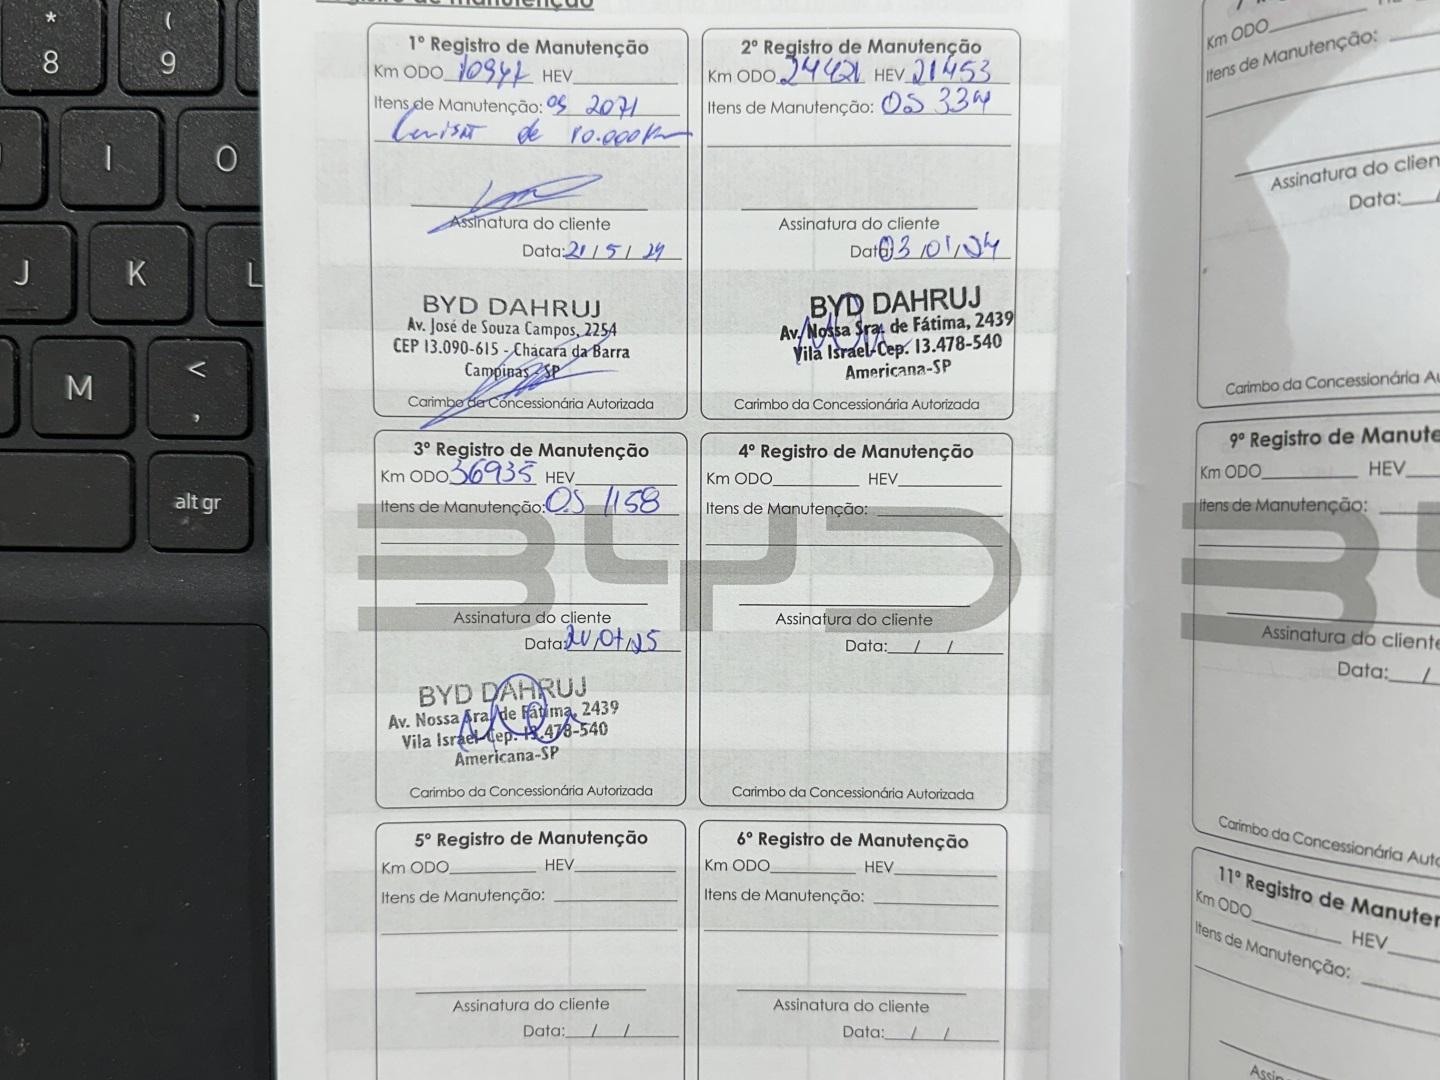 * (
8 9
I O
J K L
M < ,
alt gr
1º Registro de Manutenção
Km ODO 10947 HEV
Itens de Manutenção: OS 2071
de 10.000Km
Assinatura do cliente
Data: 21/5/24
BYD DAHRUJ
Av. José de Souza Campos, 2254
CEP 13.090-615 - Chácara da Barra
Campinas - SP
Carimbo da Concessionária Autorizada
2º Registro de Manutenção
Km ODO 24421 HEV 21453
Itens de Manutenção: OS 334
Assinatura do cliente
Data: 03/01/24
BYD DAHRUJ
Av. Nossa Sra. de Fátima, 2439
Vila Israel-Cep. 13.478-540
Americana-SP
Carimbo da Concessionária Autorizada
3º Registro de Manutenção
Km ODO 36935 HEV
Itens de Manutenção: OS 1158
Assinatura do cliente
Data: /07/25
BYD DAHRUJ
Av. Nossa Sra. de Fátima, 2439
Vila Israel-Cep. 13.478-540
Americana-SP
Carimbo da Concessionária Autorizada
4º Registro de Manutenção
Km ODO HEV
Itens de Manutenção:
Assinatura do cliente
Data: / /
Carimbo da Concessionária Autorizada
BYD
5º Registro de Manutenção
Km ODO HEV
Itens de Manutenção:
Assinatura do cliente
Data: / /
6º Registro de Manutenção
Km ODO HEV
Itens de Manutenção:
Assinatura do cliente
Data: / /
Km ODO
Itens de Manutenção:
Assinatura do clien
Data: /
Carimbo da Concessionária Au
9º Registro de Manute
Km ODO HEV
Itens de Manutenção:
Assinatura do cliente
Data: /
Carimbo da Concessionária Auto
11º Registro de Manuten
Km ODO HEV
Itens de Manutenção: